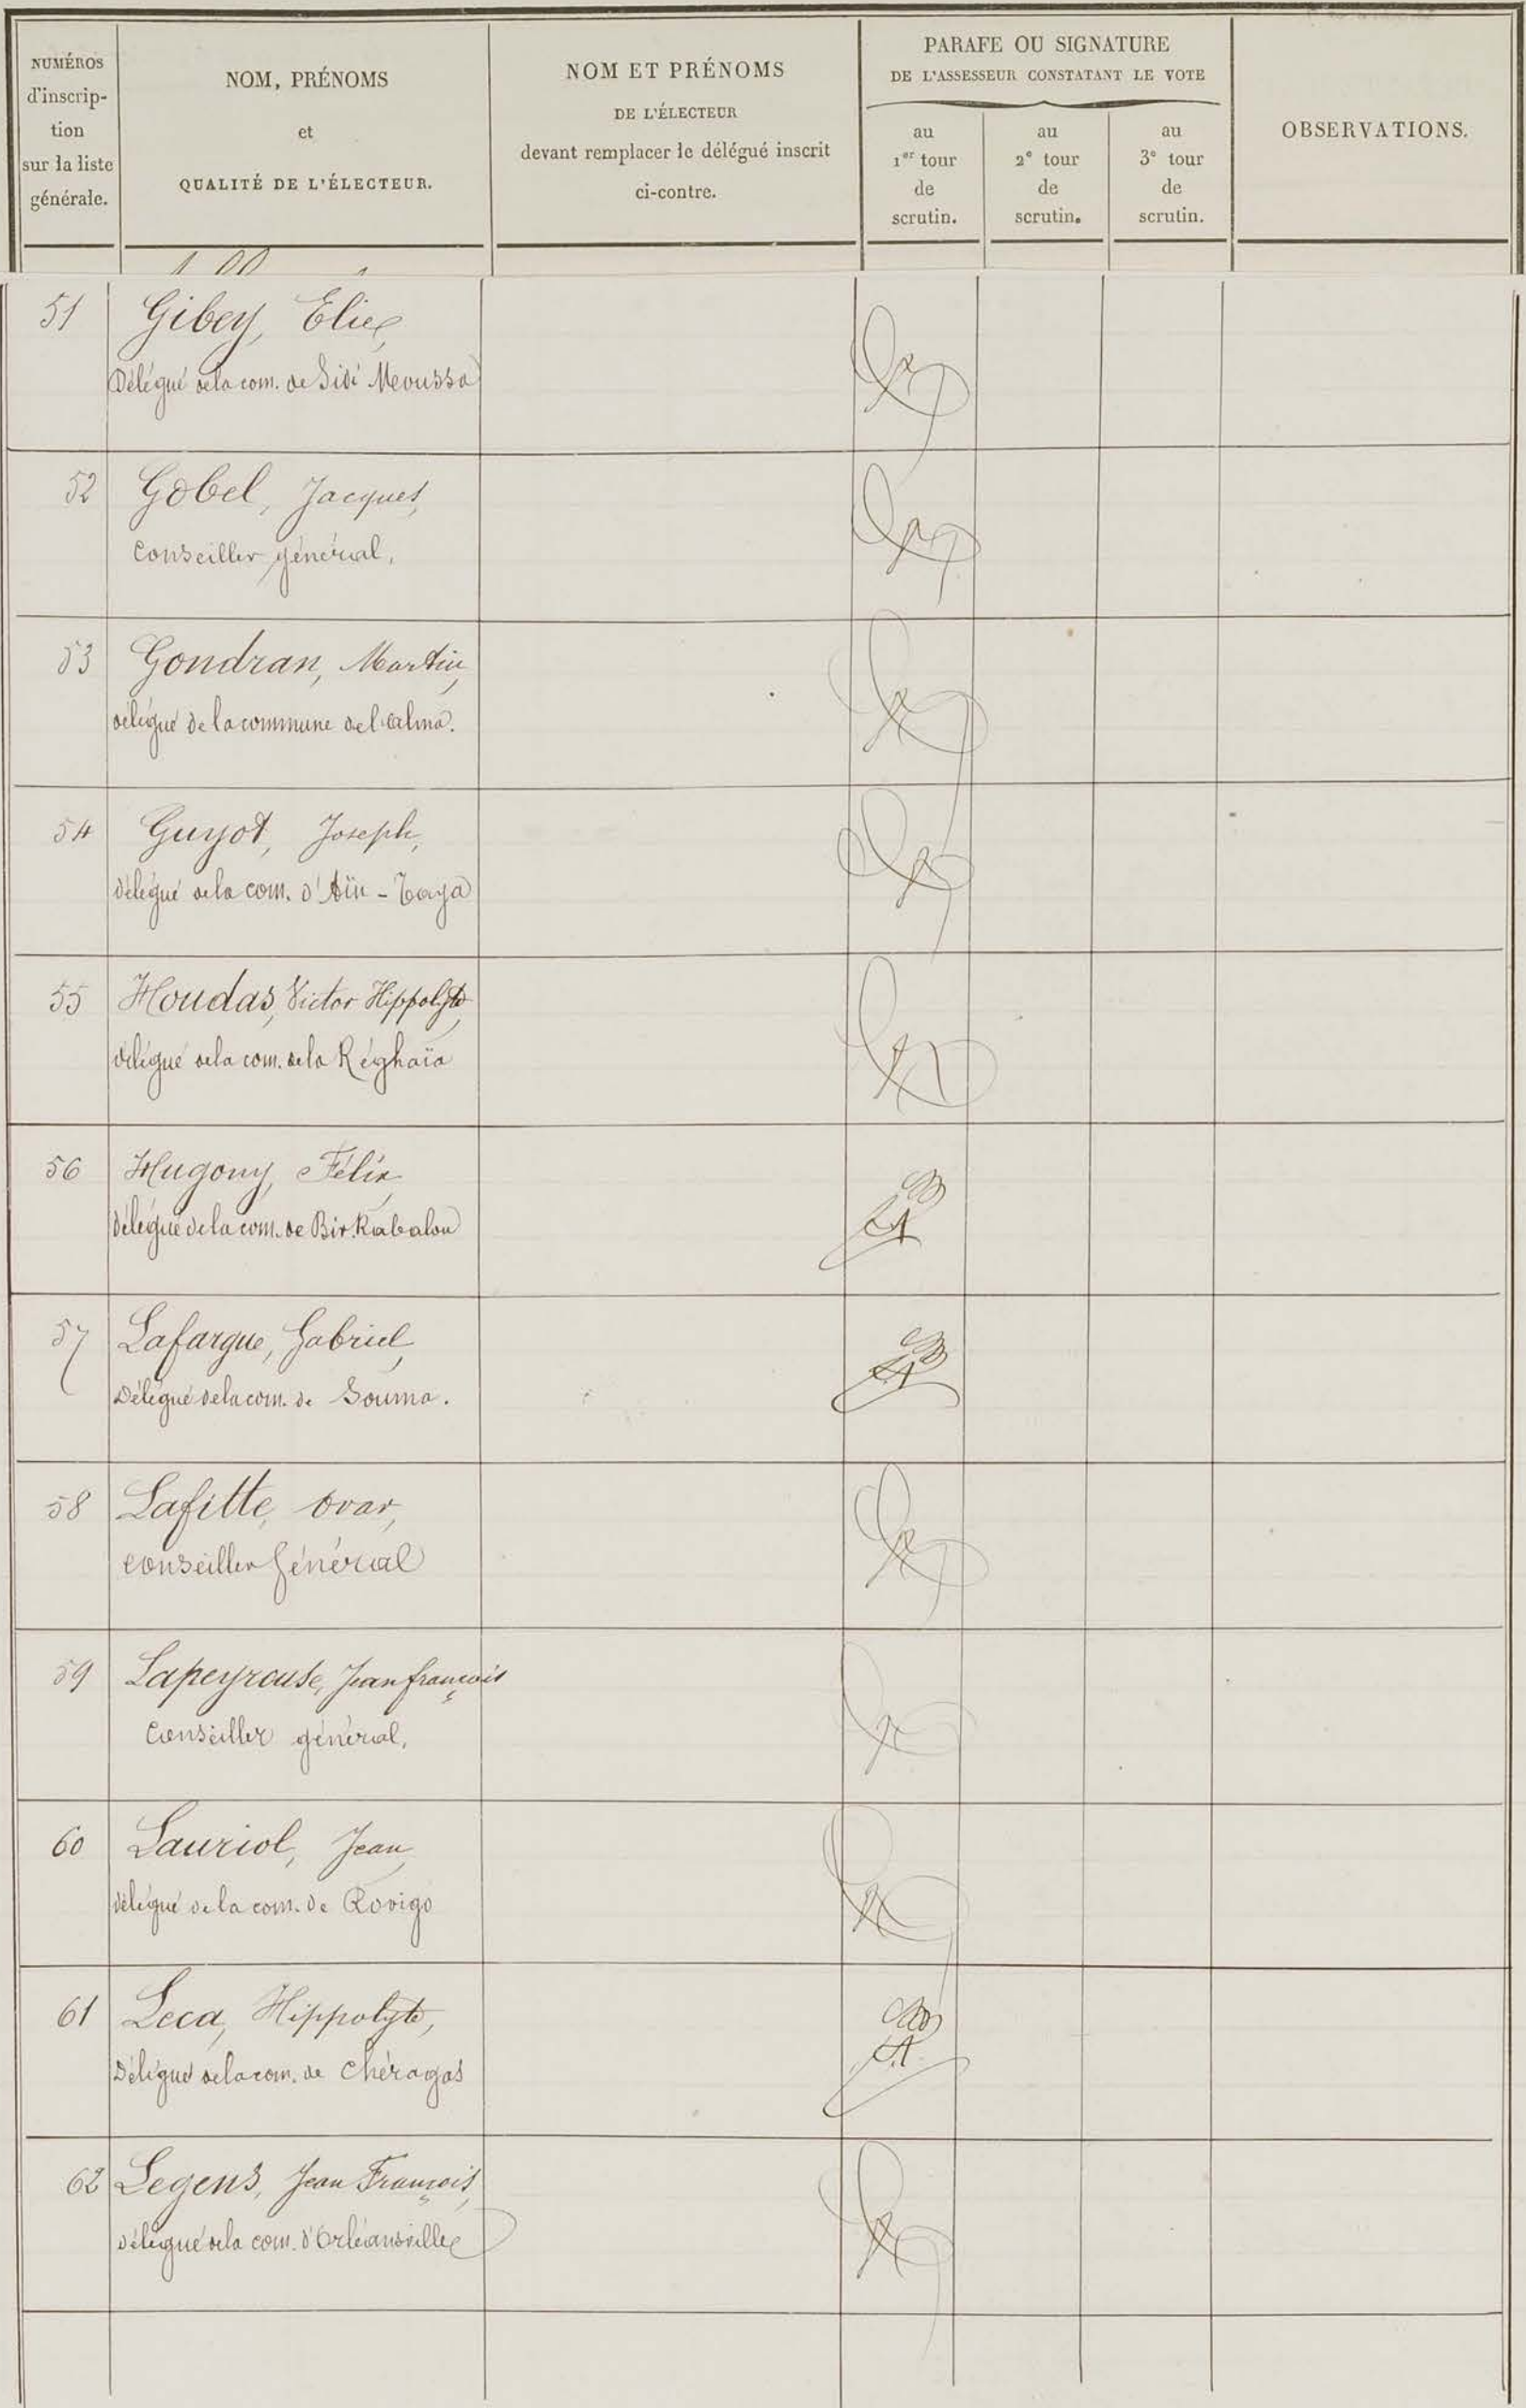 NUMÉROS
d'inscrip-
tion
sur la liste
générale.
NOM, PRÉNOMS
et
QUALITÉ DE L'ÉLECTEUR.
NOM ET PRÉNOMS
DE L'ÉLECTEUR
devant remplacer le délégué inscrit
ci-contre.
PARAFE OU SIGNATURE
DE L'ASSESSEUR CONSTATANT LE VOTE
au
1er tour
de
scrutin.
au
2e tour
de
scrutin.
au
3e tour
de
scrutin.
OBSERVATIONS.
51 Gibey, Elie,
Délégué de la com. de Sidi Moussa
52 Gobel, Jacques,
Conseiller général.
53 Gondran, Martin,
délégué de la commune de l'alma.
54 Guyot, Joseph,
délégué de la com. d'Aïn-Taya
55 Houdas, Victor Hippolyte,
délégué de la com. de la Réghaïa
56 Hugony, Félix
délégué de la com. de Bir. Rabalou
57 Lafargue, Gabriel,
Délégué de la com. de Souma.
58 Lafitte,
conseiller Général
59 Lapeyrouse, Jean françois
Conseiller général.
60 Lauriol, Jean,
délégué de la com. de Rovigo
61 Leca, Hippolyte,
Délégué de la com. de Chéragas
62 Legens, Jean François,
délégué de la com. d'Orléansville